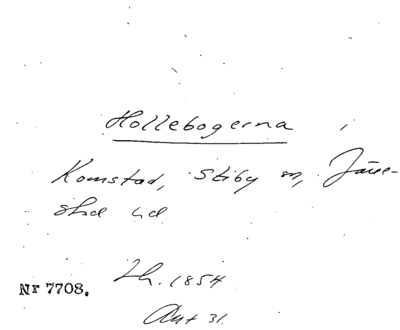 Hollebogerna i
Komstad, Stiby sn, Järre-
stad hd
Lh. 1854
Nr 7708.
Akt 31.